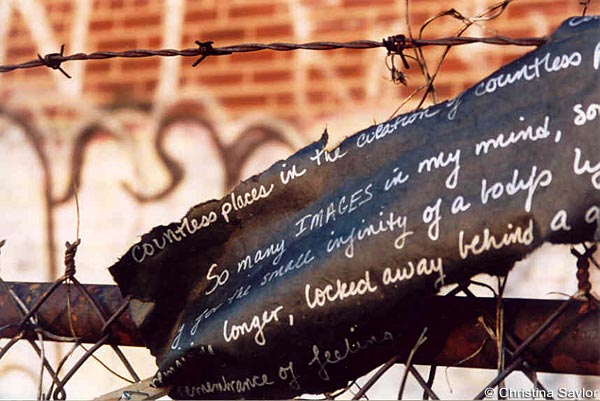 countless places in the creation of countless
So many IMAGES in my mind, so
for the small infinity of a body's
longer, locked away behind a
remembrance of feeling
© Christina Saylor